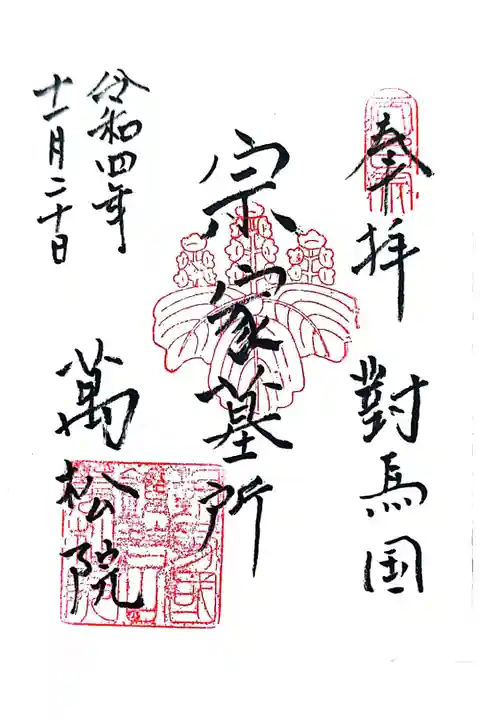 奉拝 對馬国
宗家墓所
令和四年
十一月二十日
萬松院